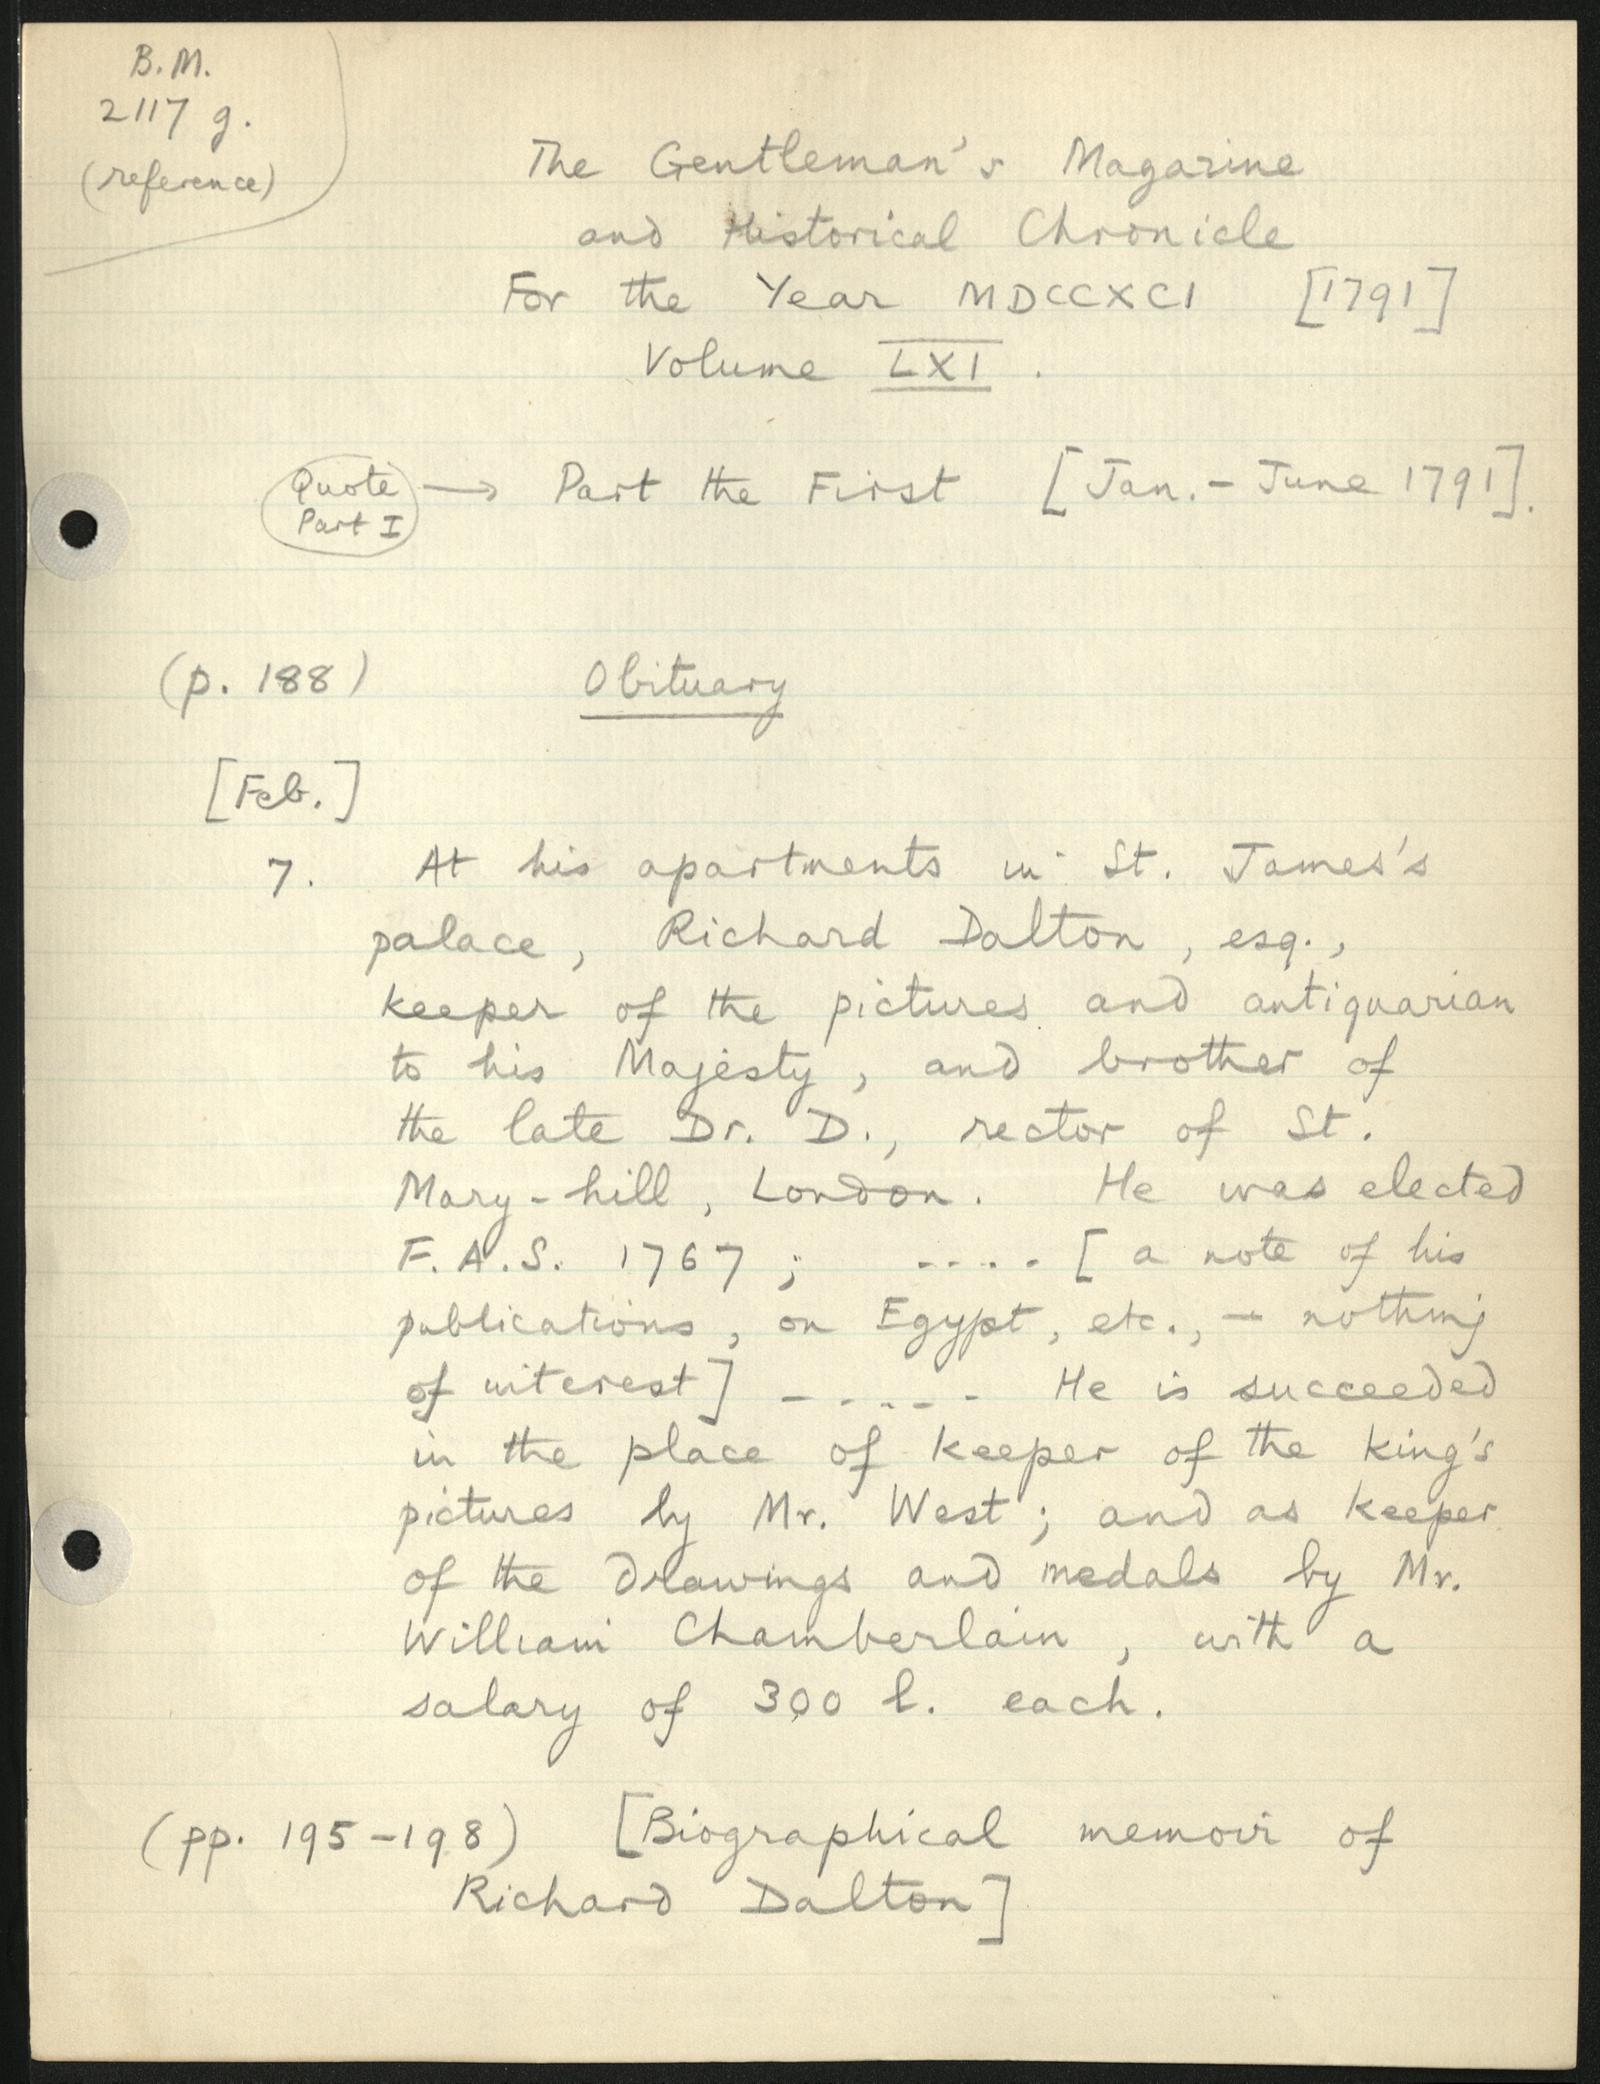 B.M.
2117 g.
(reference)
The Gentleman's Magazine
and Historical Chronicle
For the Year MDCCXCI [1791]
Volume LXI.
Quote
Part I
→ Part the First [Jan. - June 1791].
(p. 188) Obituary
[Feb.]
7. At his apartments in St. James's
palace, Richard Dalton, esq.,
keeper of the pictures and antiquarian
to his Majesty, and brother of
the late Dr. D., rector of St.
Mary-hill, London. He was elected
F.A.S. 1767; .... [a note of his
publications, on Egypt, etc., - nothing
of interest] ..... He is succeeded
in the place of keeper of the king's
pictures by Mr. West; and as keeper
of the drawings and medals by Mr.
William Chamberlain, with a
salary of 300 l. each.
(pp. 195-198) [Biographical memoir of
Richard Dalton]